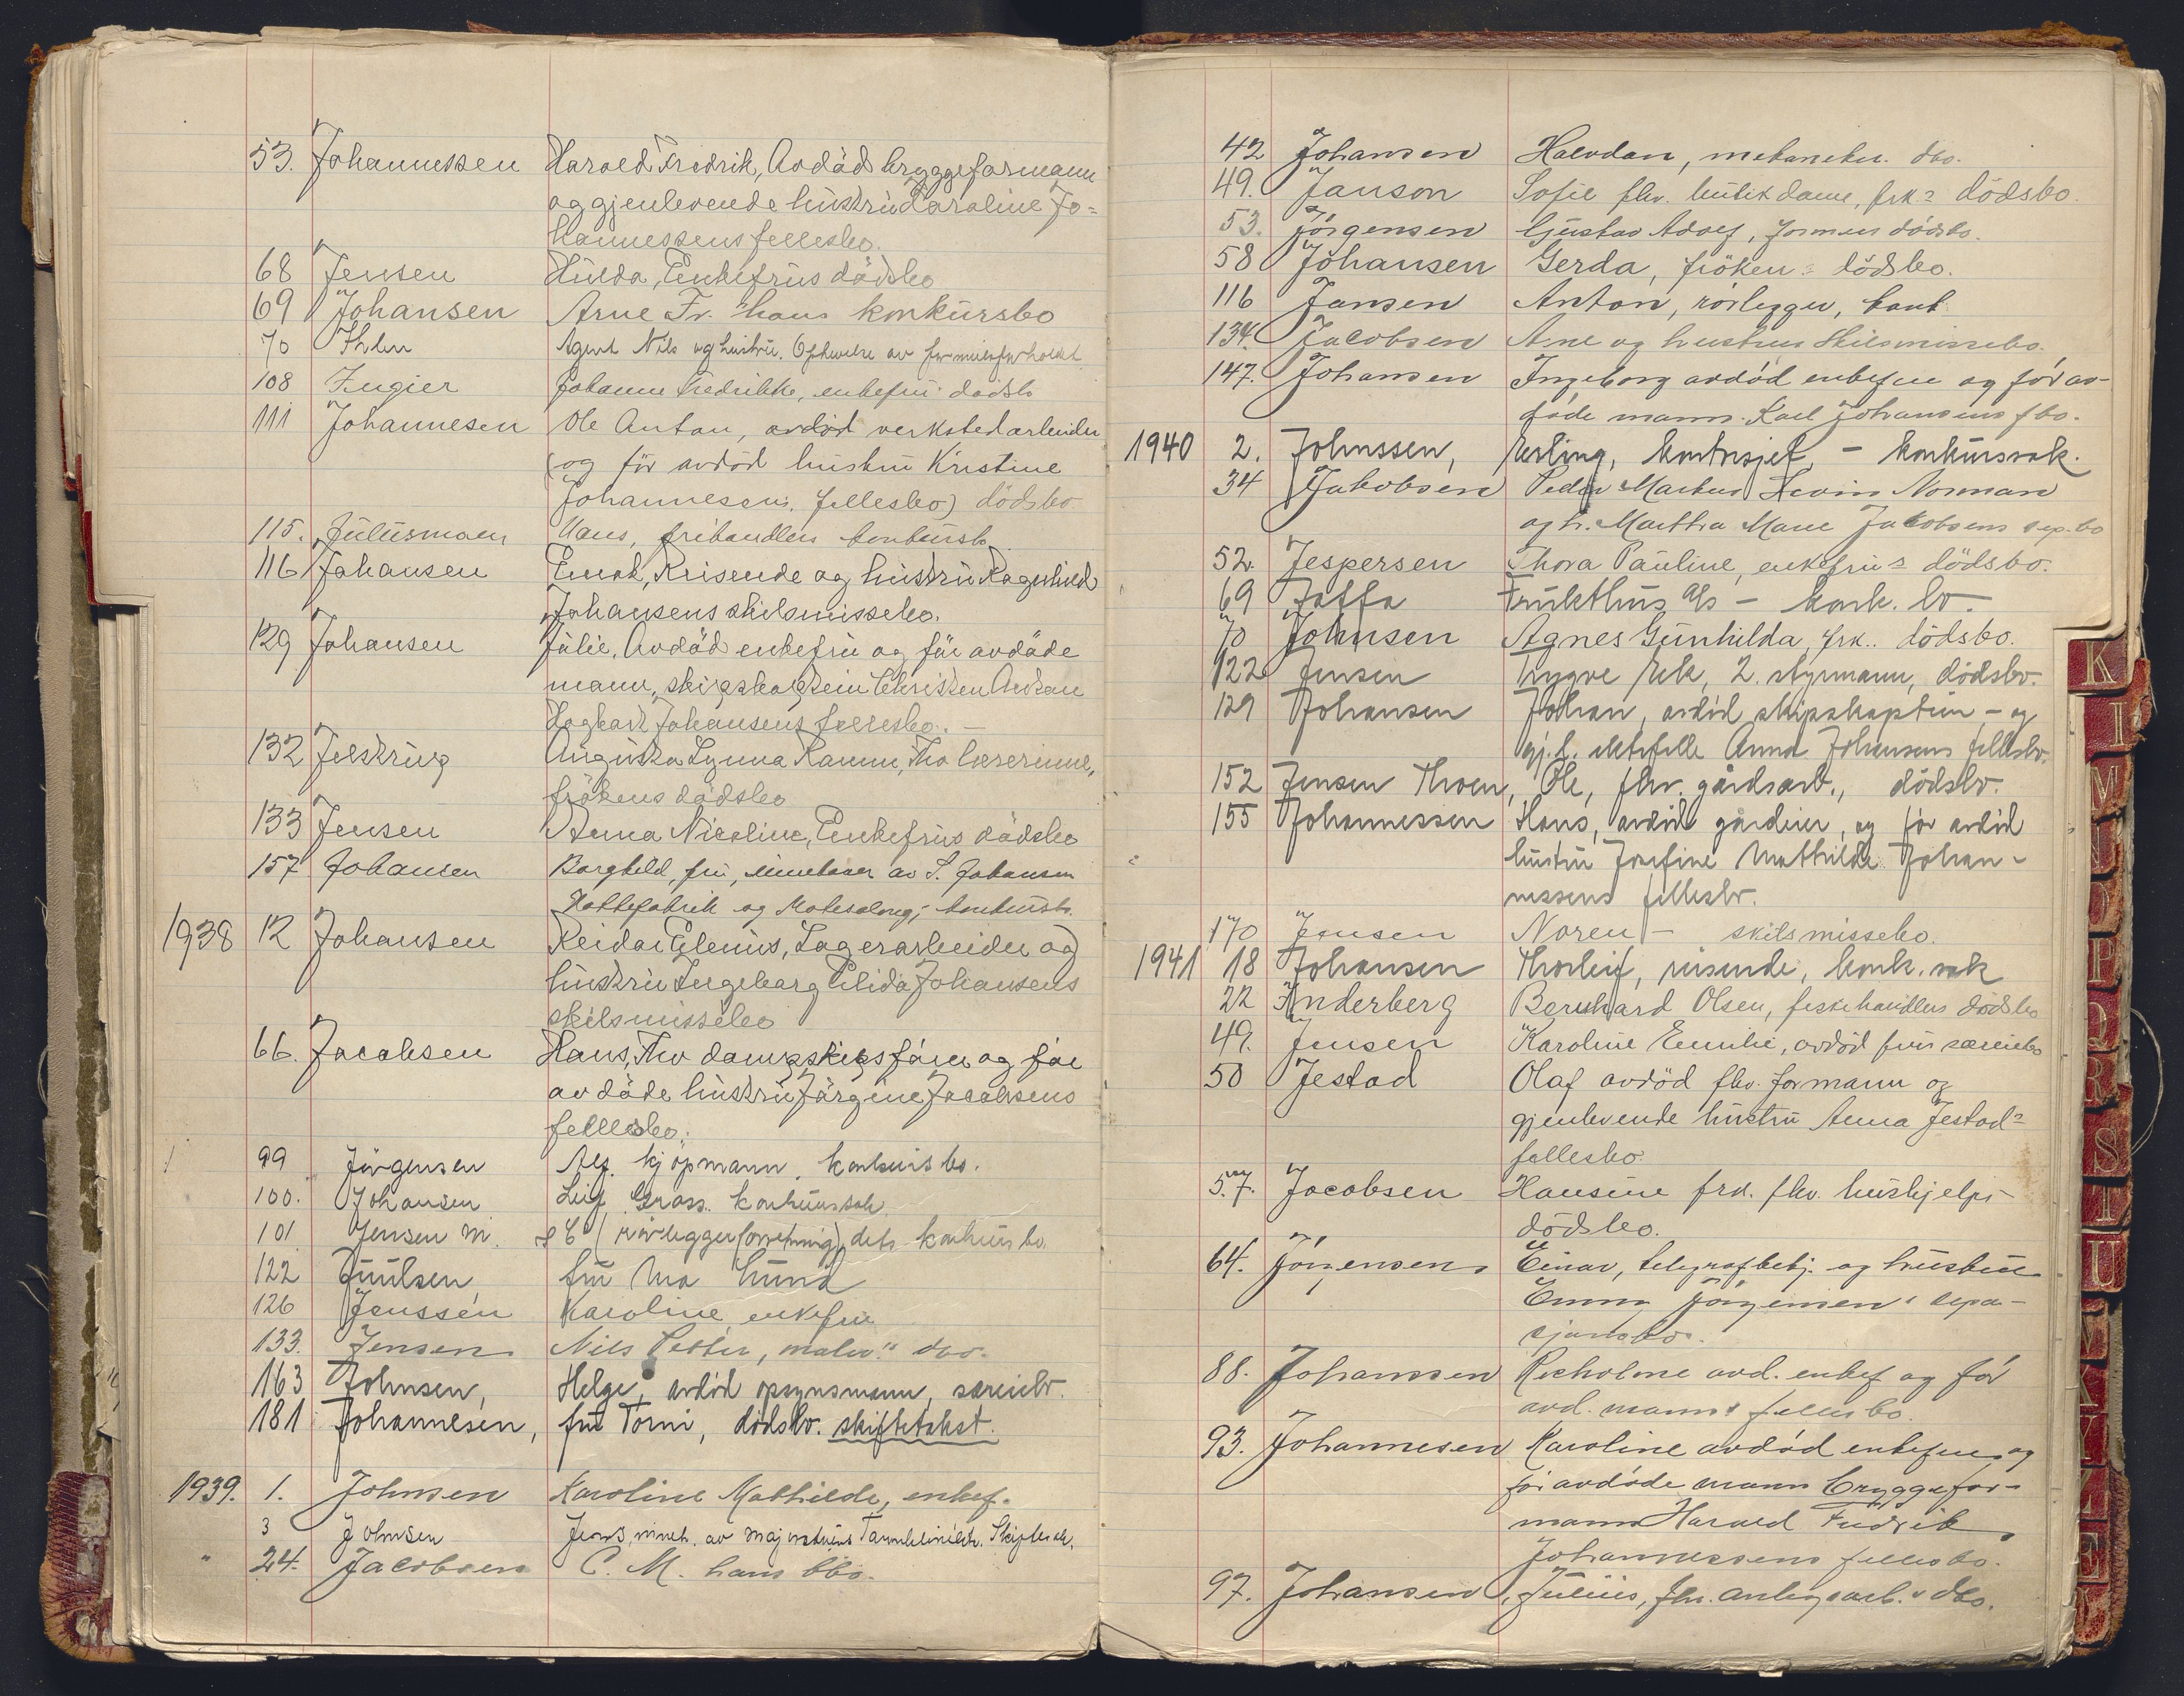 53. Johannessen Harald Fredrik, Avdöd bryggeformann
og gjenlevende hustru Karoline Jo=
hannessens fellesbo.
68 Jensen Hulda, Enkefrus dödsbo
69 Johansen Arne Fr. hans konkursbo
70 Ihlen Agent Nils og hustru. Ophevelse av formuesforholdet
108 Zugier Johanne Fredrikke, enkefru dödsb
111 Johannesen Ole Anton, avdöd verkstedarbeider
(og för avdöd hustru Kristine
Johannesens fellesbo) dödsbo
115. Juliusmoen Hans, frihandlers konkursb.
116 Johansen Enok, Reisende og hustru Ragnhild
Johansens skilsmissebo.
129 Johansen Julie, Avdöd enkefru og för avdöde
mann, skipskaptein Christen Anton
Hagbart Johansens fellesbo. —
132 Jelstrup Augusta Lynna Ramm, Fhv lærerinne,
frökens dödsbo
133 Jensen Anna Nicoline, Enkefrus dödsbo
157 Johansen Borghild, fru, innehaver av S. Johansen
Hattefabrik og Motesalong; konkursb.
1938 12 Johansen Reidar Elenius, Lagerarbeider og
hustru Ingeborg Elida Johansens
skilsmissebo
66. Jacobsen Hans, Fhv dampskipsförer og för
avdöde hustru Jörgine Jacobsens
fellesbo.
99 Jörgensen Alf. kjöpmann. konkursbo.
100. Johansen Leif Gross. konkurssak
101 Jensen M. & Co (rörleggerforretning), dets konkursbo
122 Juulsen fru Ma Lund
126 Jenssen Karoline enkefru
133. Jensen Nils Petter, maler" dbo.
163 Johnsen, Helge, avdöd opsynsmann, særeiebo.
181 Johannesen, fru Torni, dödsbo. skiftetakst.
1939. 1. Johnsen Karoline Mathilde, enkef.
3 Johnsen Jens, inneh. av Majorstuens Tannklinikk. Skiftesak.
" 24. Jacobsen C. M. hans kbo.
42 Johansen Halvdan, mekaniker. dbo.
49. Janson Sofie fhv. butikdame, frk.s dödsbo.
53. Jörgensen Gustav Adolf, formens dödsbo.
58 Johansen Gerda, fröken s dödsbo.
116 Jansen Anton, rörlegger, konk.
134. Jacobsen Arne og hustrus skilsmissebo.
147. Johansen Ingeborg avdöd enkefru og för av-
döde mann Karl Johansens fbo.
1940 2. Johnssen, Erling, kontorsjef, – konkurssak.
34 Jakobsen Peder Markus Levin Norman
og h. Martha Marie Jakobsens sep.bo
52. Jespersen Thora Pauline, enkefru s dödsbo.
69 Jaffa Frukthus A/s – konk. bo.
70 Johnsen Agnes Gunhilda, frk.. dödsbo.
122 Jensen Trygve Erk, 2. styrmann, dödsbo.
129 Johansen Johan, avdöd skipskaptein – og
gj. l. ektefelle Anna Johansens fellesbo.
152 Jensen Thoen, Ole, fhv. gårdsarb., dödsbo.
155 Johannessen Hans, avdöd gårdeier, og för avdöd
hustru Josefine Mathilde Johan-
nessens fellesbo.
170 Jensen Noren – skilsmissebo.
1941 18 Johansen Thorleif, reisende, konk. sak
22 Inderberg Bernhard Olsen, fiskehandlers dödsbo
49. Jensen Karoline Emilie, avdöd frus særeiebo
50 Jestad Olaf avdöd fhv. formann og
gjenlevende hustru Anna Jestads
fellesbo.
57. Jacobsen Hansine frk. fhv. hushjelps
dödsbo.
64. Jörgensen Einar, telegrafbetj. og hustru
Emmy Jörgensen's sepa-
sjonsbo.
88. Johanssen avd. enkef og för
avd. manns fellesbo.
93. Johannesen Karoline avdöd enkefru og
för avdöde mann bryggefor-
mann Harald Fredrik
Johannessens fellesbo.
97. Johansen, Julius, fhv. anleggsarb.s dbo.
K
L
M
N
O
P
Q
R
S
T
U
V